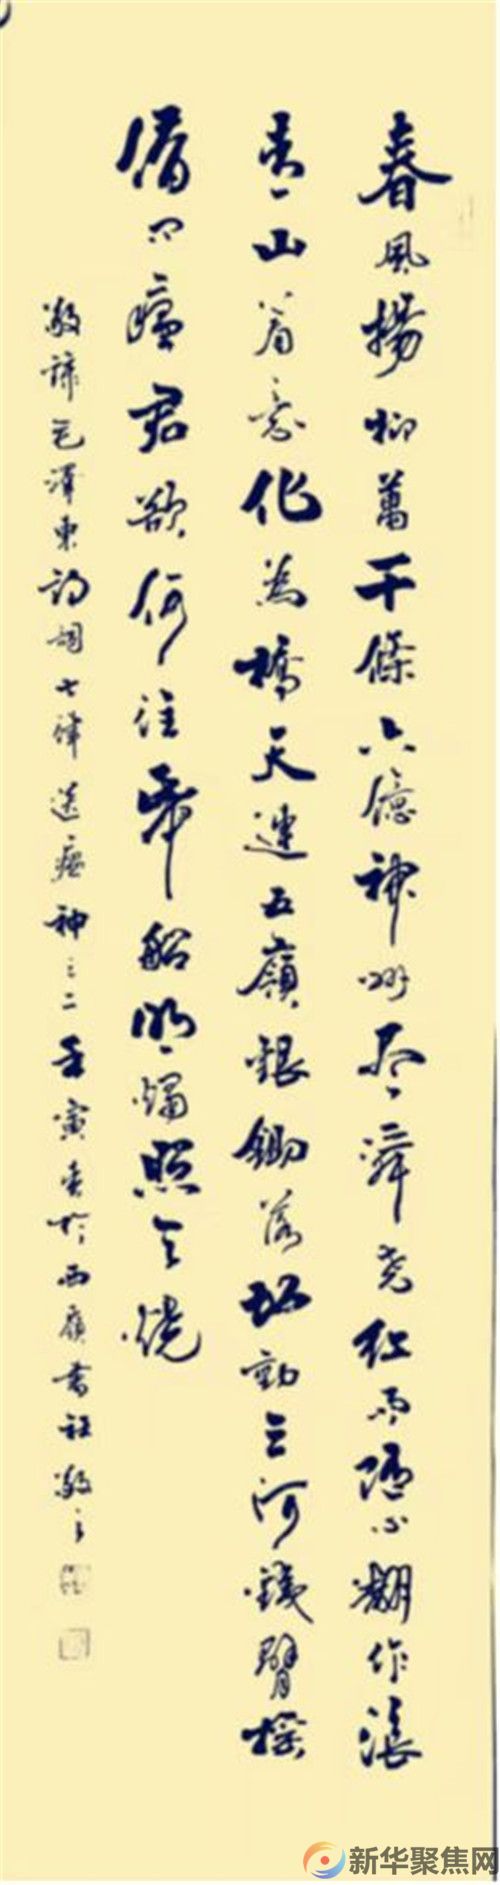 春風揚柳萬千條六億神州尽舜尧红雨随心翻作浪
青山着意化為橋天連五嶺銀鋤落地動三河鐵臂摇
借问瘟君欲何往紙船明燭照天燒
敬録毛澤東詩詞七律送瘟神之二壬寅於西嶺書社敬
新华聚焦网